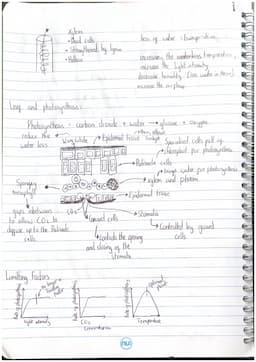 xylem
• Dead cells
• Strengthened by lignin
• Hollow
loss of water
increasing the temperature,
increase the light intensity
decrease humidity (less water in the air)
increase the airflow
Leaf and photosynthesis:
Photosynthesis - carbon dioxide + water → glucose + oxygen
reduce the
water loss
Waxy cuticle
Epidermal tissue
Specialised cells full of
chlorophyll for photosynthesis
Palisade cells
brings water for photosynthesis
xylem and phloem
Spongy
mesophyll
Epidermal tissue
gaps inbetween
to allow CO₂ to
diffuse up to the Palisade
cells.
CO₂
Guard cells
Stomata
Controlled by guard
cells
Controls the opening
and closing of the
Stomata
Limiting Factors
Rate of photosynthesis
Light intensity
Rate of photosynthesis
CO₂
Concentration
Rate of photosynthesis
Temperature
nu